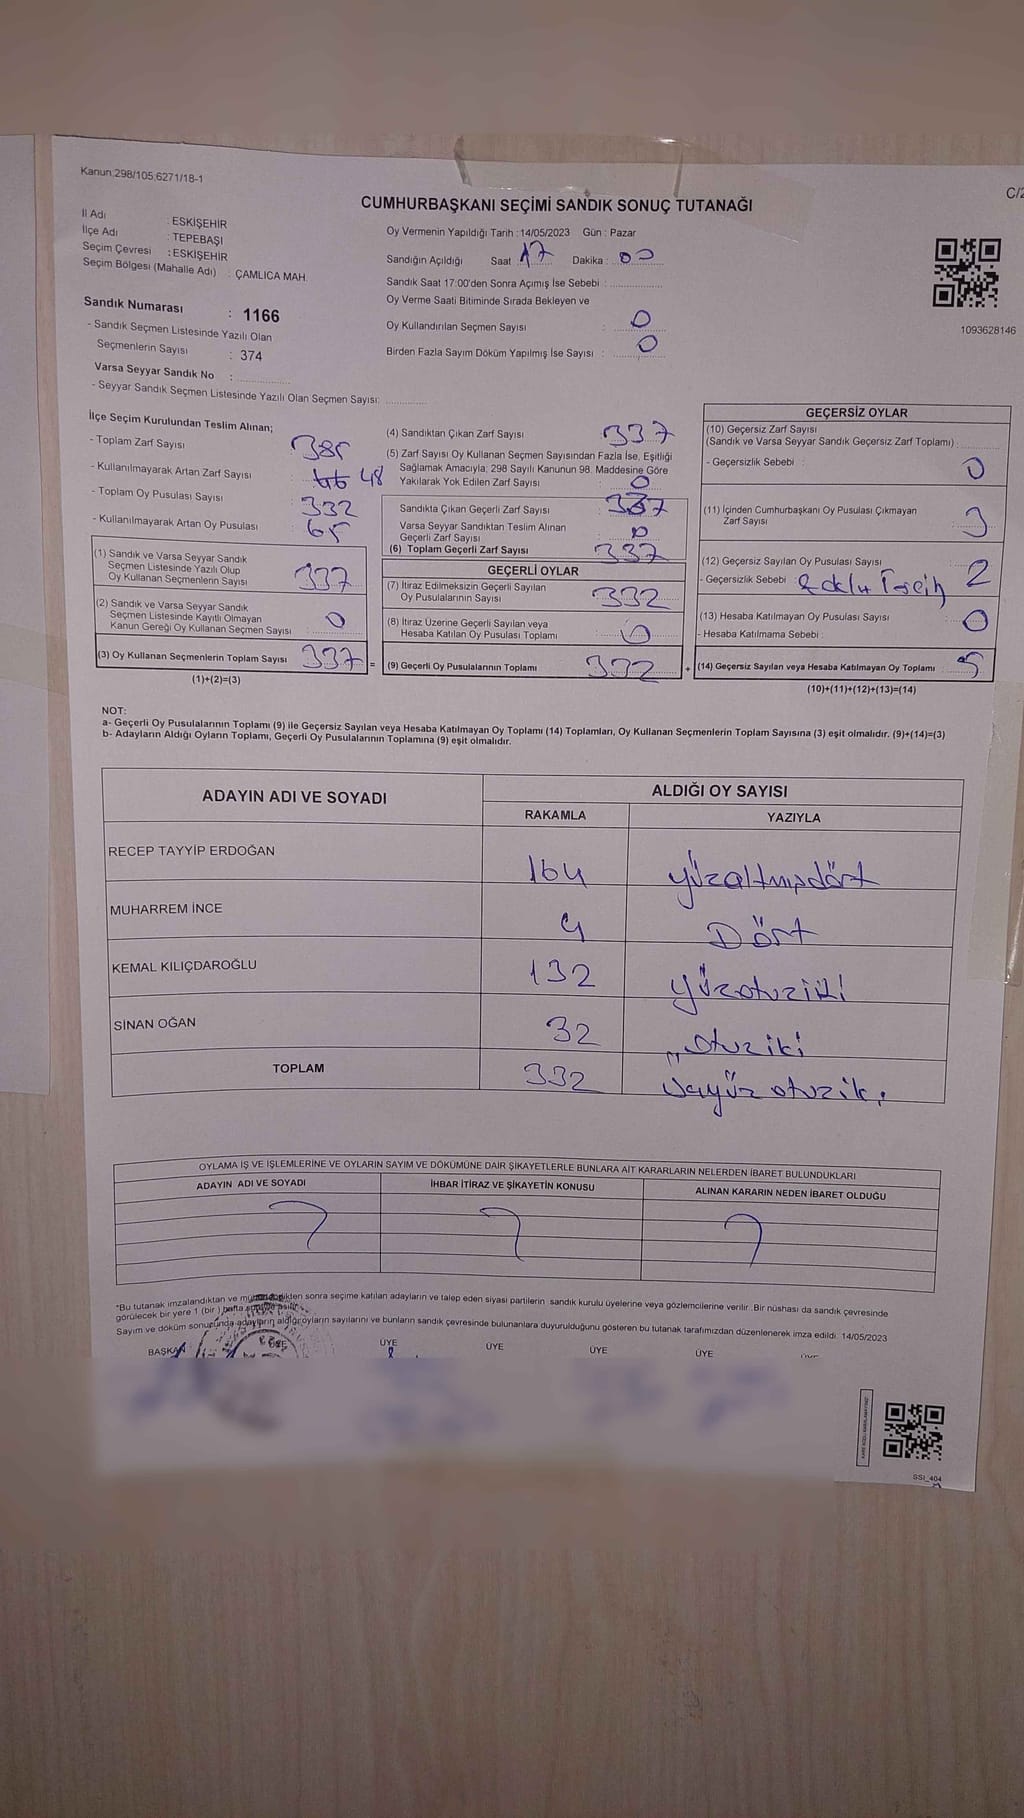 Kanun;298/105,6271/18-1
C/2
CUMHURBAŞKANI SEÇİMİ SANDIK SONUÇ TUTANAĞI
İl Adı : ESKİŞEHİR
İlçe Adı : TEPEBAŞI
Seçim Çevresi : ESKİŞEHİR
Seçim Bölgesi (Mahalle Adı) : ÇAMLICA MAH.
Sandık Numarası : 1166
- Sandık Seçmen Listesinde Yazılı Olan
Seçmenlerin Sayısı : 374
Varsa Seyyar Sandık No :
- Seyyar Sandık Seçmen Listesinde Yazılı Olan Seçmen Sayısı:
Oy Vermenin Yapıldığı Tarih :14/05/2023 Gün : Pazar
Sandığın Açıldığı Saat 17 Dakika : 00
Sandık Saat 17:00'den Sonra Açımış İse Sebebi :
Oy Verme Saati Bitiminde Sırada Bekleyen ve
Oy Kullandırılan Seçmen Sayısı : 0
Birden Fazla Sayım Döküm Yapılmış İse Sayısı : 0
1093628146
İlçe Seçim Kurulundan Teslim Alınan;
- Toplam Zarf Sayısı : 385
- Kullanılmayarak Artan Zarf Sayısı : 48
- Toplam Oy Pusulası Sayısı : 332
- Kullanılmayarak Artan Oy Pusulası : 65
(1) Sandık ve Varsa Seyyar Sandık
Seçmen Listesinde Yazılı Olup
Oy Kullanan Seçmenlerin Sayısı : 337
(2) Sandık ve Varsa Seyyar Sandık
Seçmen Listesinde Kayıtlı Olmayan
Kanun Gereği Oy Kullanan Seçmen Sayısı : 0
(3) Oy Kullanan Seçmenlerin Toplam Sayısı 337 =
(1)+(2)=(3)
(4) Sandıktan Çıkan Zarf Sayısı : 337
(5) Zarf Sayısı Oy Kullanan Seçmen Sayısından Fazla İse, Eşitliği
Sağlamak Amacıyla; 298 Sayılı Kanunun 98. Maddesine Göre
Yakılarak Yok Edilen Zarf Sayısı : 0
Sandıkta Çıkan Geçerli Zarf Sayısı : 337
Varsa Seyyar Sandıktan Teslim Alınan
Geçerli Zarf Sayısı : 0
(6) Toplam Geçerli Zarf Sayısı : 337
GEÇERLİ OYLAR
(7) İtiraz Edilmeksizin Geçerli Sayılan
Oy Pusulalarının Sayısı : 332
(8) İtiraz Üzerine Geçerli Sayılan veya
Hesaba Katılan Oy Pusulası Toplamı : 0
(9) Geçerli Oy Pusulalarının Toplamı 332 +
GEÇERSİZ OYLAR
(10) Geçersiz Zarf Sayısı
(Sandık ve Varsa Seyyar Sandık Geçersiz Zarf Toplamı) :
- Geçersizlik Sebebi : 0
(11) İçinden Cumhurbaşkanı Oy Pusulası Çıkmayan
Zarf Sayısı : 3
(12) Geçersiz Sayılan Oy Pusulası Sayısı : 2
- Geçersizlik Sebebi : Tercih
(13) Hesaba Katılmayan Oy Pusulası Sayısı : 0
- Hesaba Katılmama Sebebi :
(14) Geçersiz Sayılan veya Hesaba Katılmayan Oy Toplamı : 5
(10)+(11)+(12)+(13)=(14)
NOT:
a- Geçerli Oy Pusulalarının Toplamı (9) ile Geçersiz Sayılan veya Hesaba Katılmayan Oy Toplamı (14) Toplamları, Oy Kullanan Seçmenlerin Toplam Sayısına (3) eşit olmalıdır. (9)+(14)=(3)
b- Adayların Aldığı Oyların Toplamı, Geçerli Oy Pusulalarının Toplamına (9) eşit olmalıdır.
ADAYIN ADI VE SOYADI ALDIĞI OY SAYISI
RAKAMLA YAZIYLA
RECEP TAYYİP ERDOĞAN 164 yüzaltmışdört
MUHARREM İNCE 4 Dört
KEMAL KILIÇDAROĞLU 132 yüzotuziki
SİNAN OĞAN 32 otuziki
TOPLAM 332 üçyüz otuziki
OYLAMA İŞ VE İŞLEMLERİNE VE OYLARIN SAYIM VE DÖKÜMÜNE DAİR ŞİKAYETLERLE BUNLARA AİT KARARLARIN NELERDEN İBARET BULUNDUKLARI
ADAYIN ADI VE SOYADI İHBAR İTİRAZ VE ŞİKAYETİN KONUSU ALINAN KARARIN NEDEN İBARET OLDUĞU
*Bu tutanak imzalandıktan ve sonra seçime katılan adayların ve talep eden siyasi partilerin sandık kurulu üyelerine veya gözlemcilerine verilir. Bir nüshası da sandık çevresinde
görülecek bir yere 1 (bir ) hafta süreyle asılır.
Sayım ve döküm sonucunda adayların aldığı oyların sayılarını ve bunların sandık çevresinde bulunanlara duyurulduğunu gösteren bu tutanak tarafımızdan düzenlenerek imza edildi. 14/05/2023
BAŞKAN ÜYE ÜYE ÜYE ÜYE
SSI_404